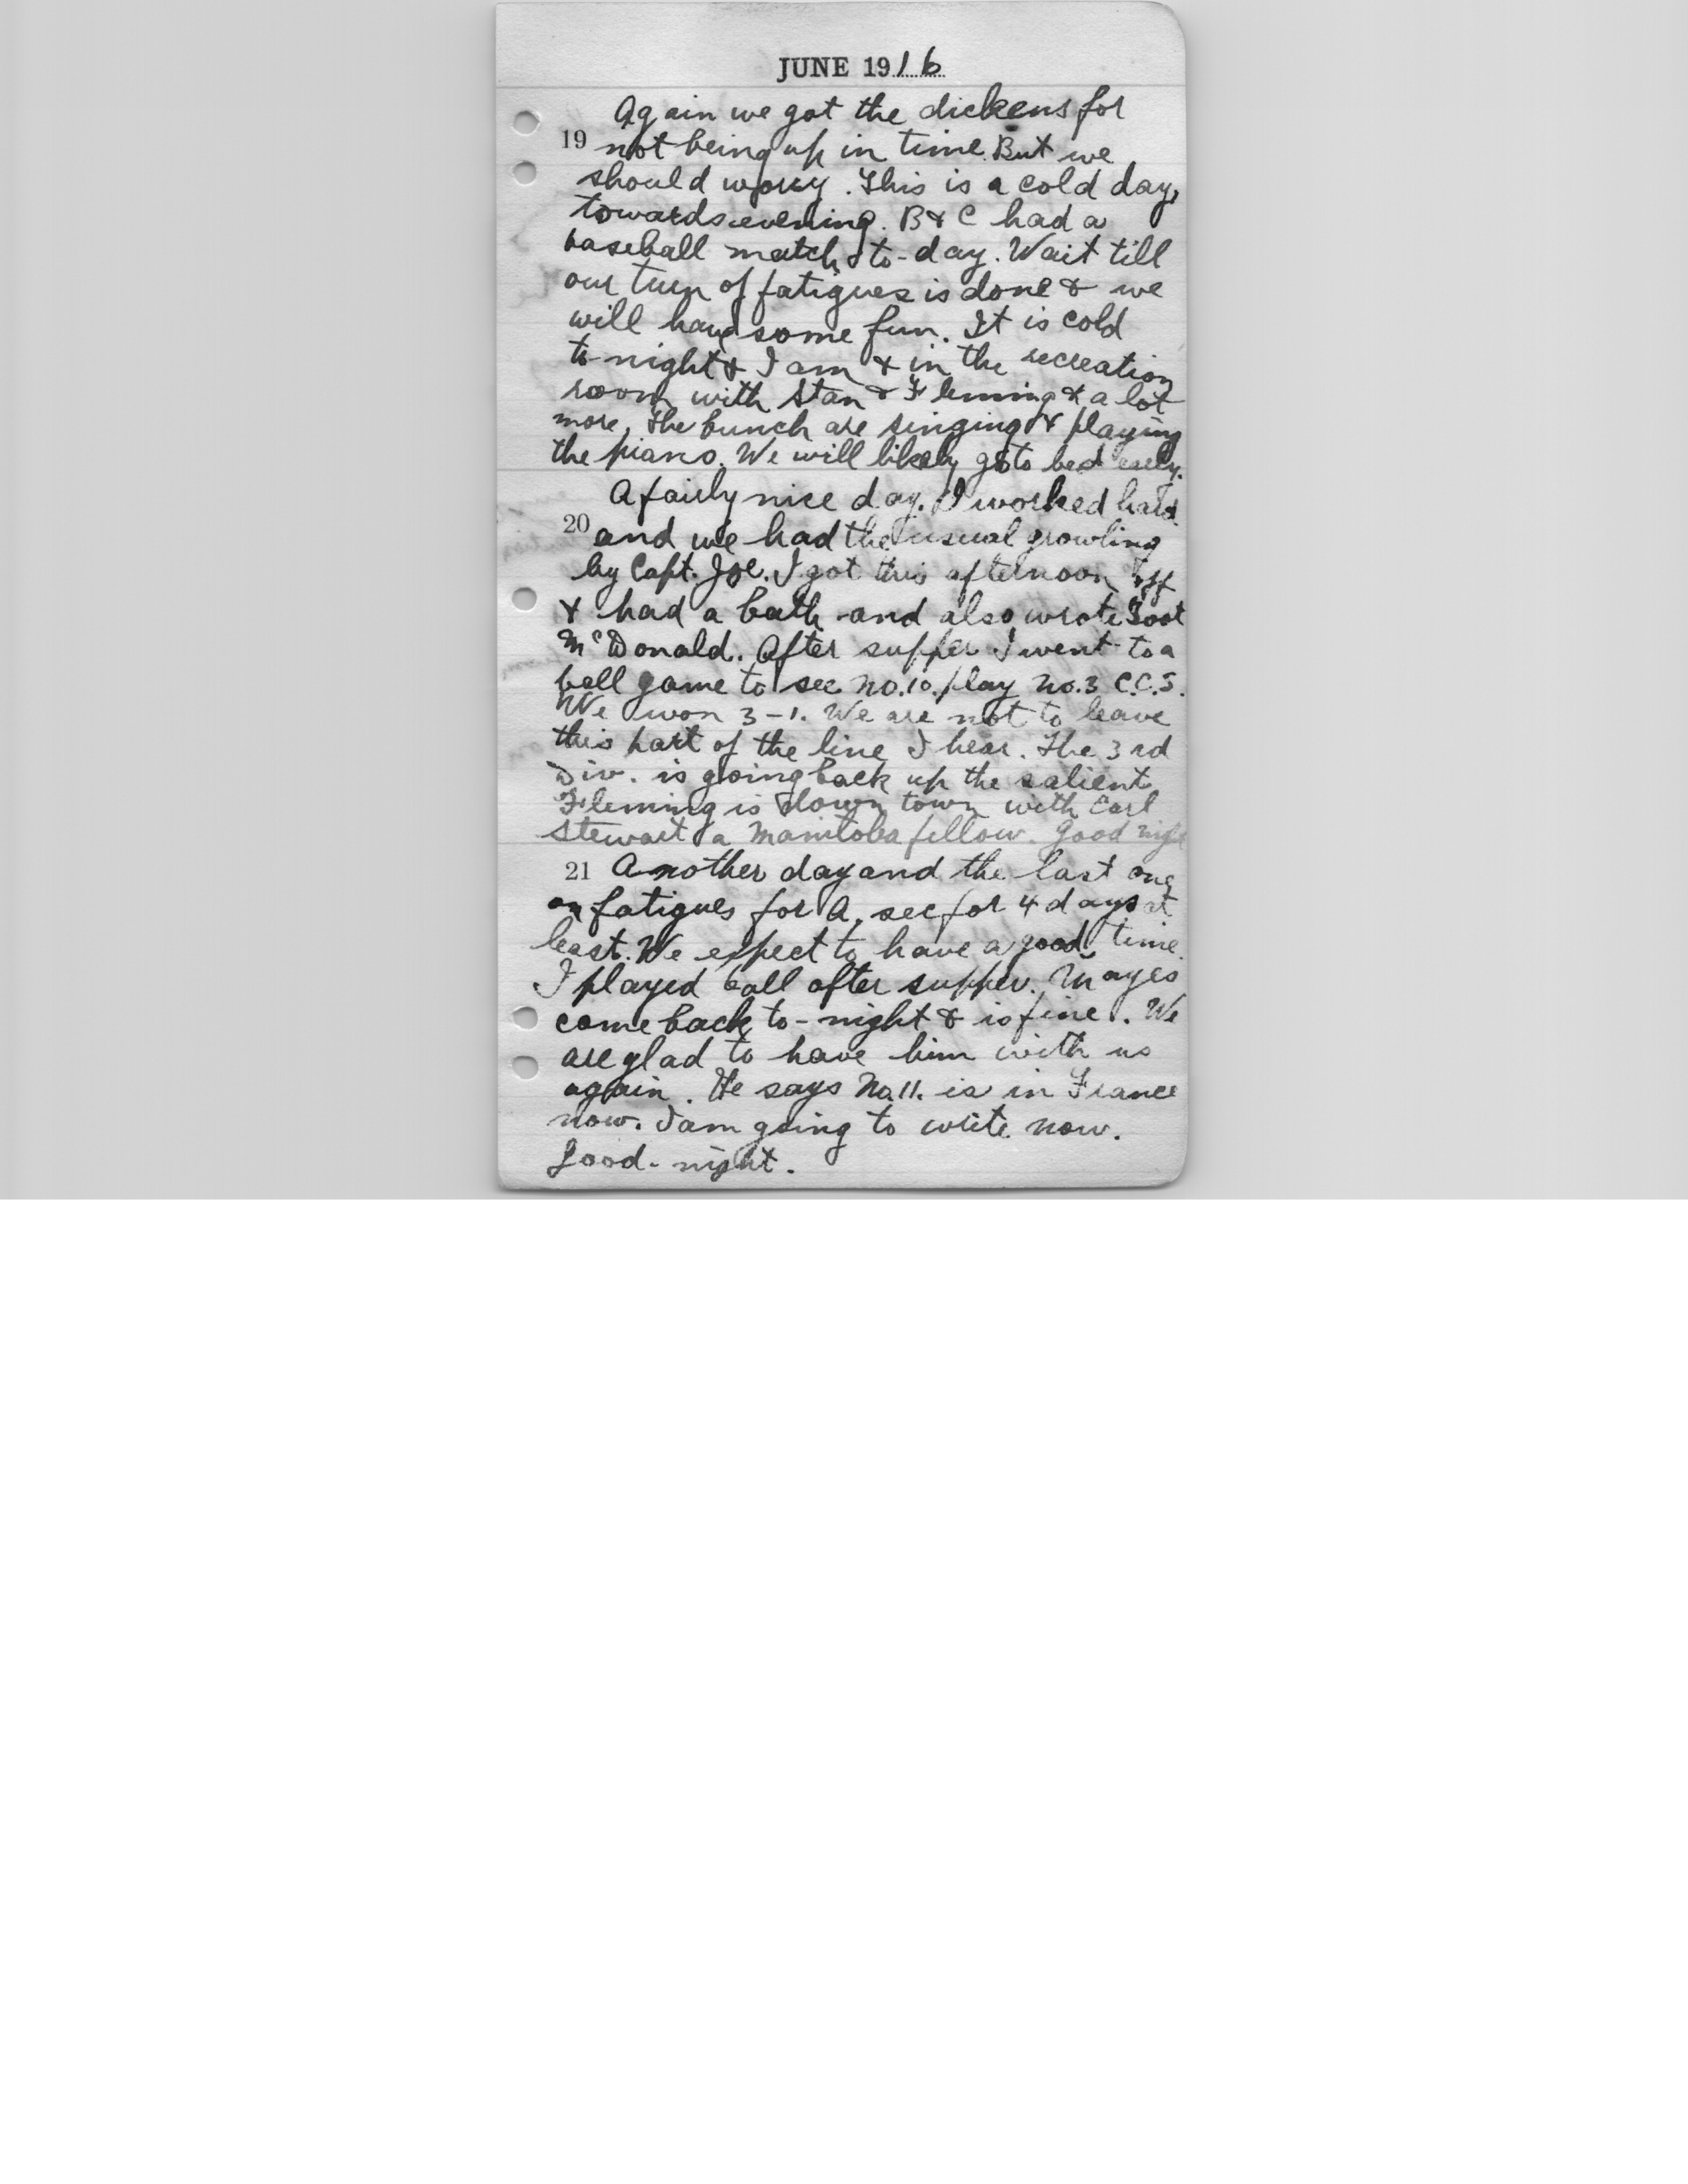 JUNE 1916
Again we got the dickens for
19 not being up in time. But we
should worry. This is a cold day,
towards evening. B & C had a
baseball match to-day. Wait till
our turn of fatigues is done & we
will have some fun. It is cold
to-night & I am & in the recreation
room with Stan & Fleming & a lot
more. The bunch are singing & playing
the piano. We will likely go to bed early.
A fairly nice day. I worked hard
20 and we had the usual growling
by Capt. Joe. I got this afternoon off
& had a bath and also wrote
McDonald. After supper I went to a
ball game to see No. 10. play No. 3 C.C.S.
We won 3-1. We are not to leave
this part of the line I hear. The 3rd
Div. is going back up the salient
Fleming is down town with Carl
Stewart a Manitoba fellow. Good night
21 Another day and the last one
on fatigues for A. sec for 4 days at
least. We expect to have a good time.
I played ball after supper. Mayes
came back to-night & is fine. We
are glad to have him with us
again. He says No. 11. is in France
now. I am going to write now.
Good-night.